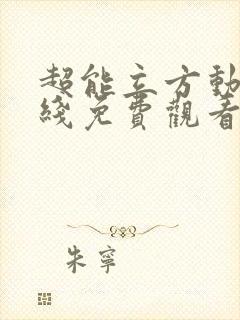 超能立方動
綫免費觀看
朱寧